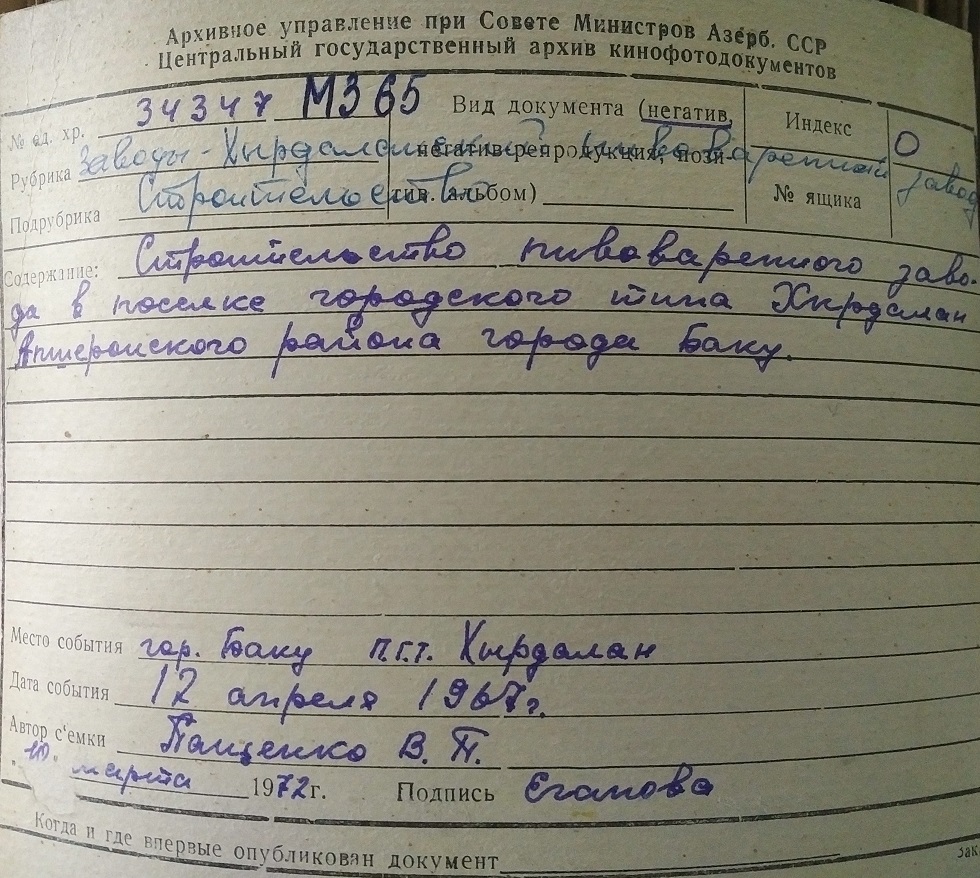 Архивное управление при Совете Министров Азерб. ССР
Центральный государственный архив кинофотодокументов
№ ед. хр. 34347 М365 Вид документа (негатив, Индекс О
Рубрика Заводы - Хырдаланский пивоваренный завод негатив-репродукция, пози-
Подрубрика Строительство тив. альбом) № ящика
Содержание: Строительство пивоваренного заво-
да в поселке городского типа Хырдалан
Апшеронского района города Баку.
Место события гор. Баку п.г.т. Хырдалан
Дата события 12 апреля 1967г.
Автор с'емки Пащенко В. П.
10 марта 1972г. Подпись Еганова
Когда и где впервые опубликован документ
зак